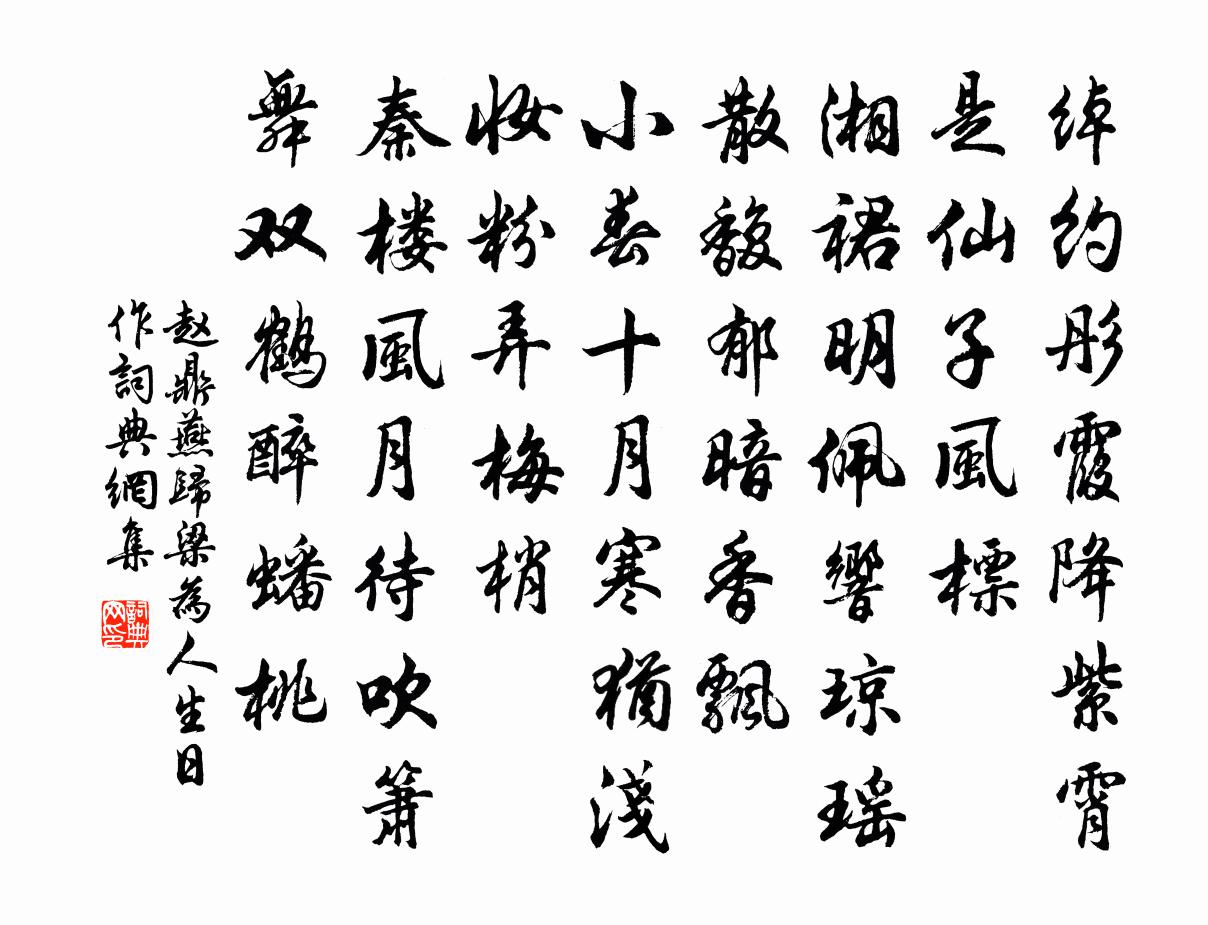 绰约彤霞降紫霄
是仙子風標
湘裙明佩響琼瑶
散馥郁暗香飄
小春十月寒猶淺
妝粉弄梅梢
秦楼風月待吹簫
舞双鶴醉蟠桃
赵鼎燕歸梁為人生日
作詞典網集
詞典网印